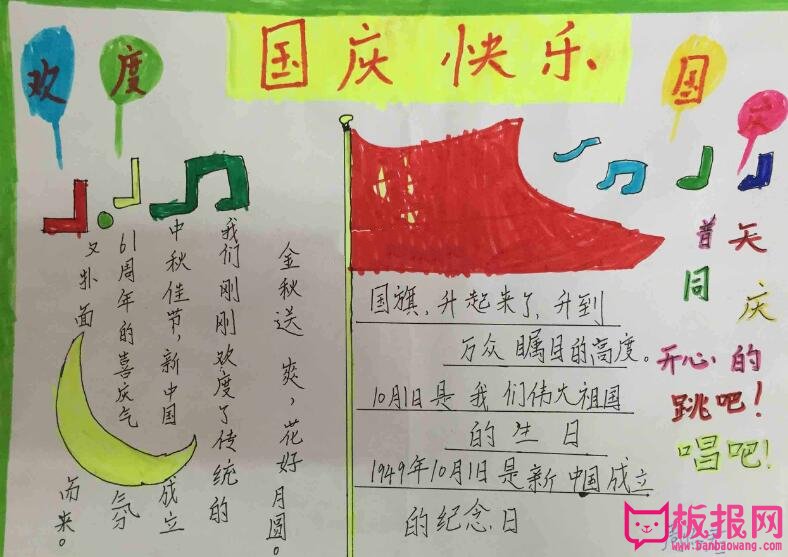 国庆快乐
欢度
国庆
金秋送爽，花好月圆。
我们刚刚欢度了传统的
中秋佳节，新中国成立
61周年的喜庆气氛
又扑面而来。
国旗，升起来了，升到
万众瞩目的高度。
10月1日是我们伟大祖国
的生日
1949年10月1日是新中国成立
的纪念日
普天
同庆
开心的
跳吧！
唱吧！
板报网
www.banbaowang.com